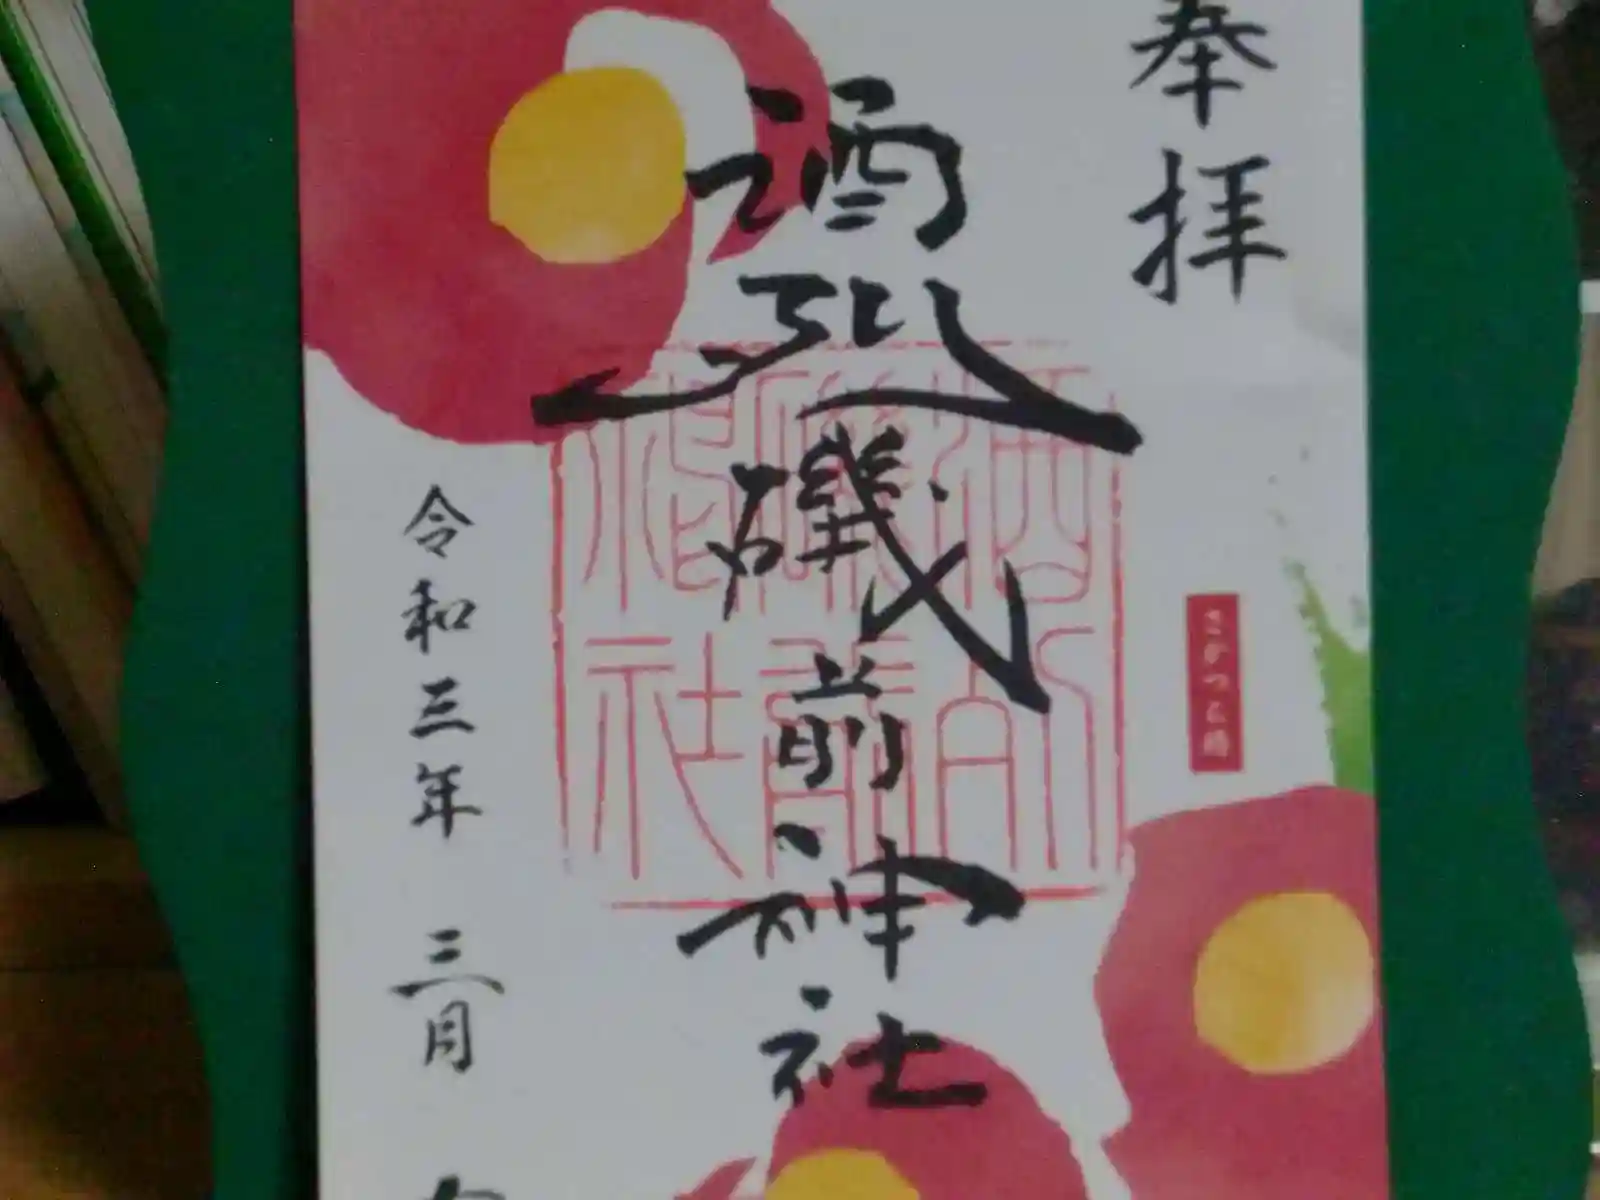 奉拝
酒列磯前神社
酒列
磯前
神社
令和三年 三月